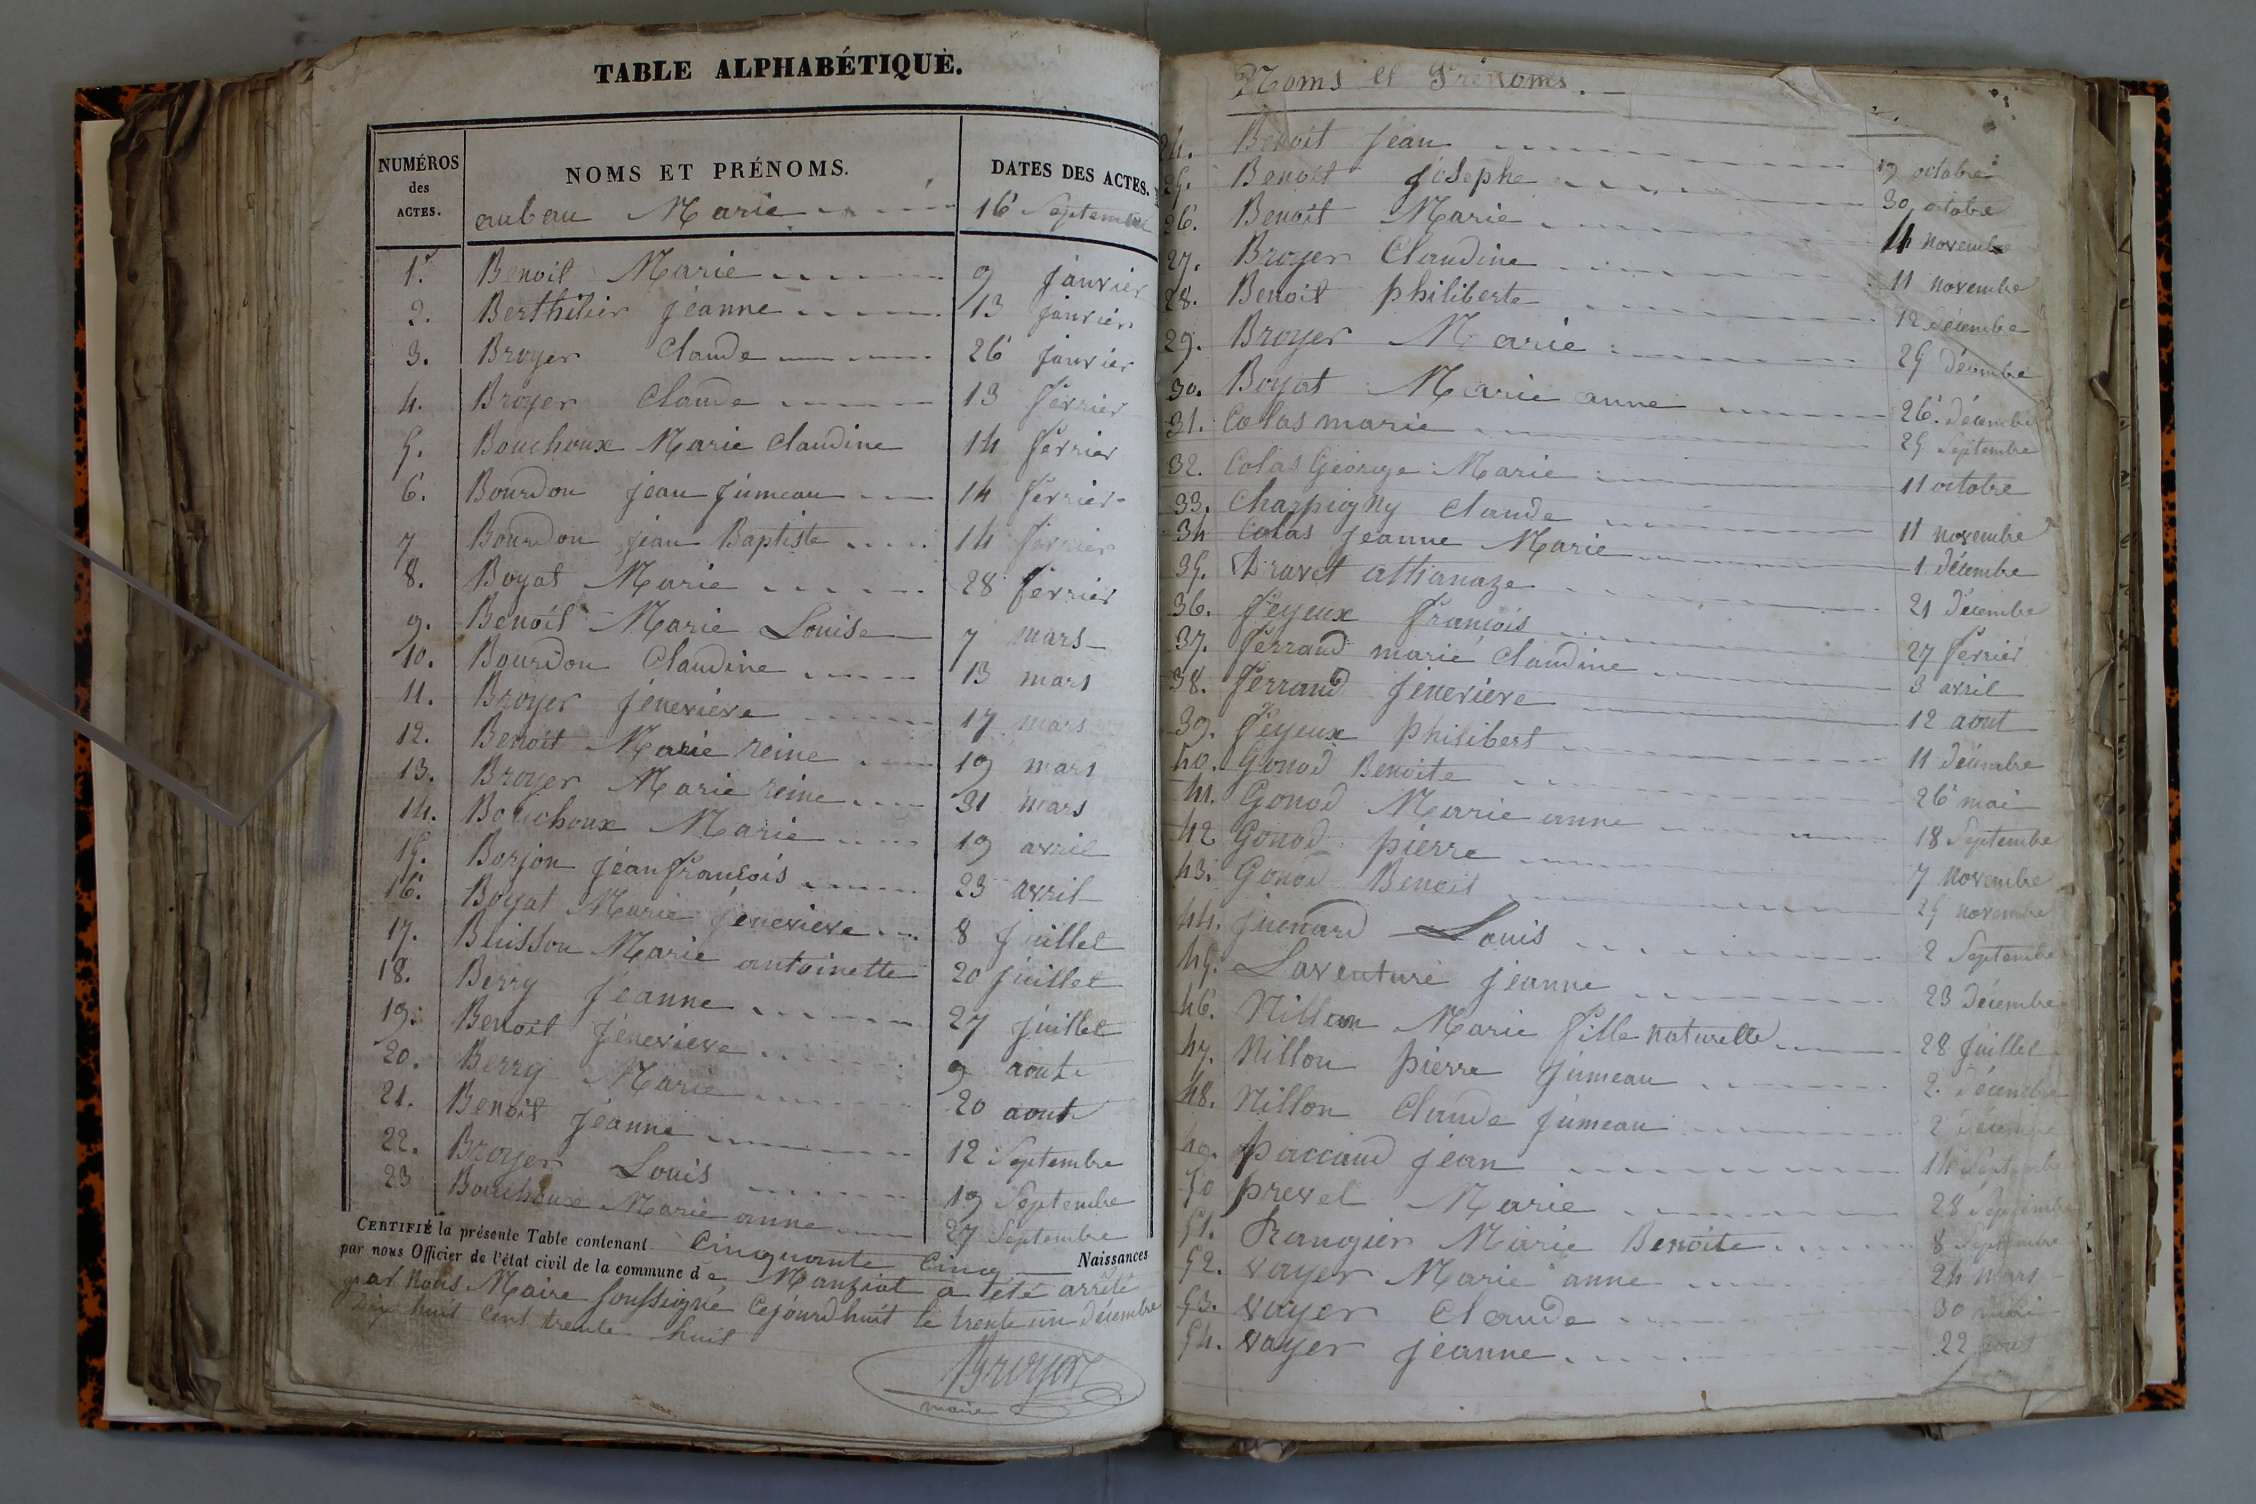 TABLE ALPHABÉTIQUE.
NUMÉROS des ACTES. NOMS ET PRÉNOMS. DATES DES ACTES.
aubeau Marie 16 Septembre
1. Benoit Marie 9 janvier
2. Berthilier jeanne 13 janvier
3. Broyer Claude 26 janvier
4. Broyer Claude 13 février
5. Bouchoux Marie Claudine 14 février
6. Bourdon jean jumeau 14 février
7 Bourdon jean Baptiste 14 février
8. Boyat Marie 28 février
9. Benoit Marie Louise 7 mars
10. Bourdon Claudine 13 mars
11. Broyer jenevieve 17 mars
12. Benoit Marie reine 19 mars
13. Broyer Marie reine 31 mars
14. Bouchoux Marie 19 avril
15. Borjon jean françois 23 avril
16. Boyat Marie jenevieve 8 juillet
17. Buisson Marie antoinette 20 juillet
18. Berry jeanne 27 juillet
19. Benoit jenevieve 9 aout
20. Berry Marie 20 aout
21. Benoit jeanne 12 Septembre
22. Broyer Louis 19 Septembre
23 Bouchoux Marie anne 27 Septembre
CERTIFIÉ la présente Table contenant Cinquante Cinq Naissances
par nous Officier de l'état civil de la commune de Manziat a été arrêté
par nous Maire soussigné Cejourdhuit le trente un décembre
dix huit cent trente huit
Broyer
maire
Noms et Prénoms.
24. Benoit jean 19 octobre
25. Benoit josephe 30 octobre
26. Benoit Marie 4 novembre
27. Broyer Claudine 11 novembre
28. Benoit philiberte 12 décembre
29. Broyer Marie 25 décembre
30. Boyat Marie anne 26 décembre
31. Colas marie 25 Septembre
32. Colas George Marie 11 octobre
33. Charpigny Claude 11 novembre
34 Colas jeanne Marie 1 décembre
35. Dravet atthanaze 21 décembre
36. feyeux françois 27 février
37. ferraud marie Claudine 3 avril
38. ferraud jenevieve 12 aout
39. feyeux philibert 11 décembre
40. Gonod Benoite 26 mai
41. Gonod Marie anne 18 Septembre
42 Gonod pierre 7 novembre
43. Gonod Benoit 25 novembre
44. juenard Louis 2 Septembre
45. Laventure jeanne 23 décembre
46. Nillon Marie fille naturelle 28 juillet
47. Nillon pierre jumeau 2 décembre
48. Nillon Claude jumeau 2 décembre
49. paccaud jean 14 Septembre
50 prevel Marie 28 Septembre
51. Rangier Marie Benoite 8 Septembre
52. vayer Marie anne 24 mars
53. vayer Claude 30 mai
54. vayer jeanne 22 aout